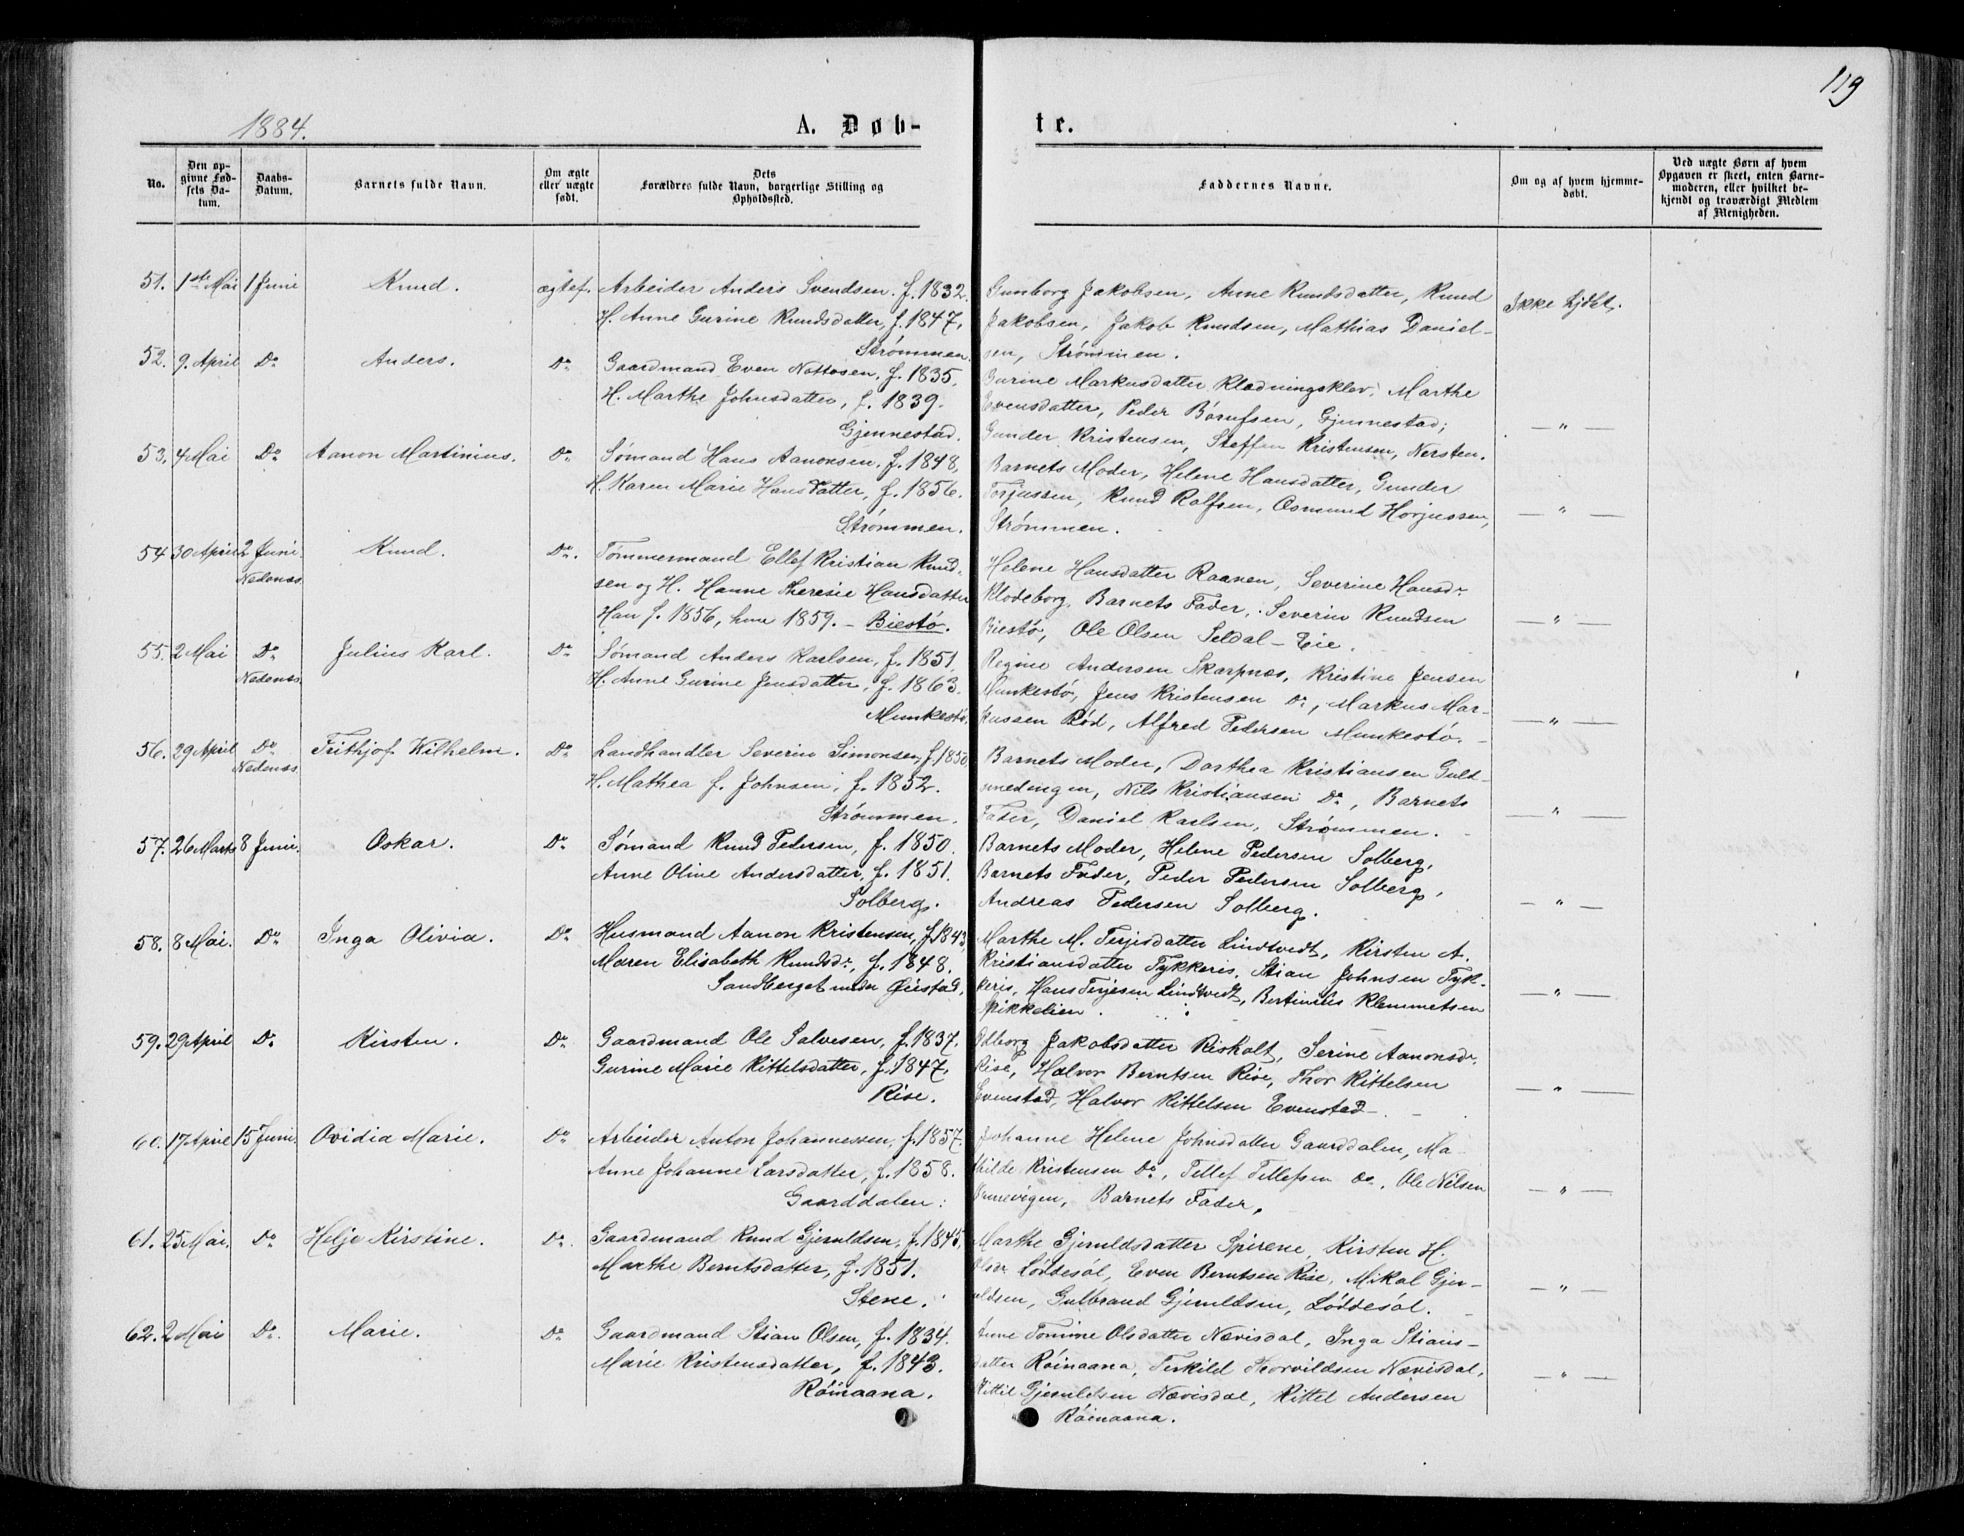 119
1884.
A. Døb-
te.
No.
Den op-
givne Fød-
sels Da-
tum.
Daabs-
Datum.
Barnets fulde Navn.
Om ægte
eller uægte
født.
Dets
Forældres fulde Navn, borgerlige Stilling og
Opholdssted.
Faddernes Navne.
Om og af hvem hjemme-
døbt.
Ved uægte Børn af hvem
Opgaven er skeet, enten Barne-
moderen, eller hvilket be-
kjendt og troværdigt Medlem
af Menigheden.
51. 1ste Mai 1 Juni Knud. ægtef. Arbeider Anders Svendsen. f. 1832.
H. Anne Gurine Knudsdatter, f. 1847,
Strømmen.
Gunborg Jakobsen, Anne Knudsdatter, Knud
Jakobsen, Jakob Knudsen, Mathias Daniel-
sen, Strømmen.
Ikke hjdbt.
52. 9. April Do Anders. Do Gaardmand Even Nottosen, f. 1835.
H. Marthe Johnsdatter, f. 1839.
Gjennestad.
Gurine Markusdatter Klodningsklev, Marthe
Evensdatter, Peder Børufsen, Gjennestad;
Gunder Kristensen, Steffen Kristensen, Nersten.
— " —
53. 4 Mai Do Aanon Martinius. Do Sømand Hans Aanonsen, f. 1848,
H. Karen Marie Hansdatter, f. 1856.
Strømmen.
Barnets Moder, Helene Hansdatter, Gunder
Torjussen, Knud Rolfsen, Osmund Horjussen,
Strømmen.
— " —
54 30 April 2 Juni Nedenæs Knud. Do. Tømmermand Ellef Kristian Knud-
sen og H. Hanne Theresie Hansdatter
Han f. 1856, hun 1859. – Biestø.
Helene Hansdatter Raanen, Severine Hansdr
Klodeborg, Barnets Fader, Severin Knudsen
Biestø, Ole Olsen Seldal – Eie.
— " —
55. 2 Mai Do Nedenæs Julius Karl. Do Sømand Anders Karlsen, f. 1851
H. Anne Gurine Jensdatter, f. 1863.
Munkestø.
Regine Andersen Skarpnæs, Kristine Jensen
Munkestø, Jens Kristensen Do, Markus Mar-
kussen Rød, Alfred Pedersen Munkestø.
— " —
56. 29 April Do Nedenæs Frithjof Vilhelm. Do Landhandler Severin Simonsen, f. 1850
H. Mathea f. Johnsen, f. 1852.
Strømmen.
Barnets Moder, Dorthea Kristiansen Guld-
smedengen, Nils Kristiansen Do, Barnets
Fader, Daniel Karlsen, Strømmen.
— " —
57. 26 Marts 8 Juni. Oskar. Do Sømand Knud Pedersen, f. 1850.
Anne Oline Andersdatter, f. 1851.
Solberg.
Barnets Moder, Helene Pedersen Solberg,
Barnets Fader, Peder Pedersen Solberg,
Andreas Pedersen Solberg.
— " —
58. 8 Mai. Do Inga Olivia. Do Husmand Aanon Kristensen, f. 1843
Maren Elisabeth Knudsdr, f. 1848.
Sandberget under Øiestad.
Marthe M. Terjesdatter Lindtvedt, Kirsten A.
Kristiansdatter Tykkeris, Stian Johnsen Tyk-
keris, Hans Terjesen Lindtvedt, Bertinius Klemmetsen
Spikkelien.
— " —
59. 29 April Do Kirsten. Do Gaardmand Ole Salvesen, f. 1837.
Gurine Marie Kittelsdatter, f. 1847,
Rise.
Odborg Jakobsdatter Risholt, Serine Aanonsdr.
Rise, Halvor Berntsen Rise, Thor Kittelsen
Evenstad, Halvor Kittelsen Evenstad –
— " —
60. 17 April 15 Juni. Ovidia Marie. Do Arbeider Anton Johannessen, f. 1857.
Anne Johanne Larsdatter, f. 1858.
Gaarddalen:
Johanne Helene Johnsdatter Gaarddalen, Ma-
thilde Kristensen Do, Tellef Tellefsen Do, Ole Nilsen
Ormevigen, Barnets Fader,
— " —
61. 25 Mai. Do Helje Kirstine. Do. Gaardmand Knud Gjeruldsen, f. 1845,
Marthe Berntsdatter, f. 1851.
Stene.
Marthe Gjeruldsdatter Spirene, Kirsten H.
Olsdr Løddesøl, Even Berntsen Rise, Mikal Gjer-
uldsen, Gulbrand Gjeruldsen, Løddesøl.
— " —
62. 2 Mai Do. Marie. Do Gaardmand Stian Olsen, f. 1834.
Marie Kristensdatter, f. 1843.
Røinaana.
Anne Tomine Olsdatter Nævisdal, Inga Stians-
datter Røinaana, Terkild Thorvildsen Nævisdal,
Kittil Gjeruldsen Nævisdal, Kittel Andersen
Røinaana.
— " —